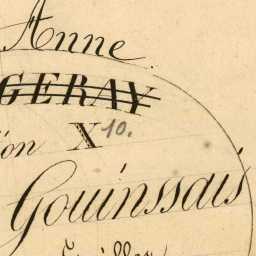 Anne
GERAY
ion X 10.
Gouinssais